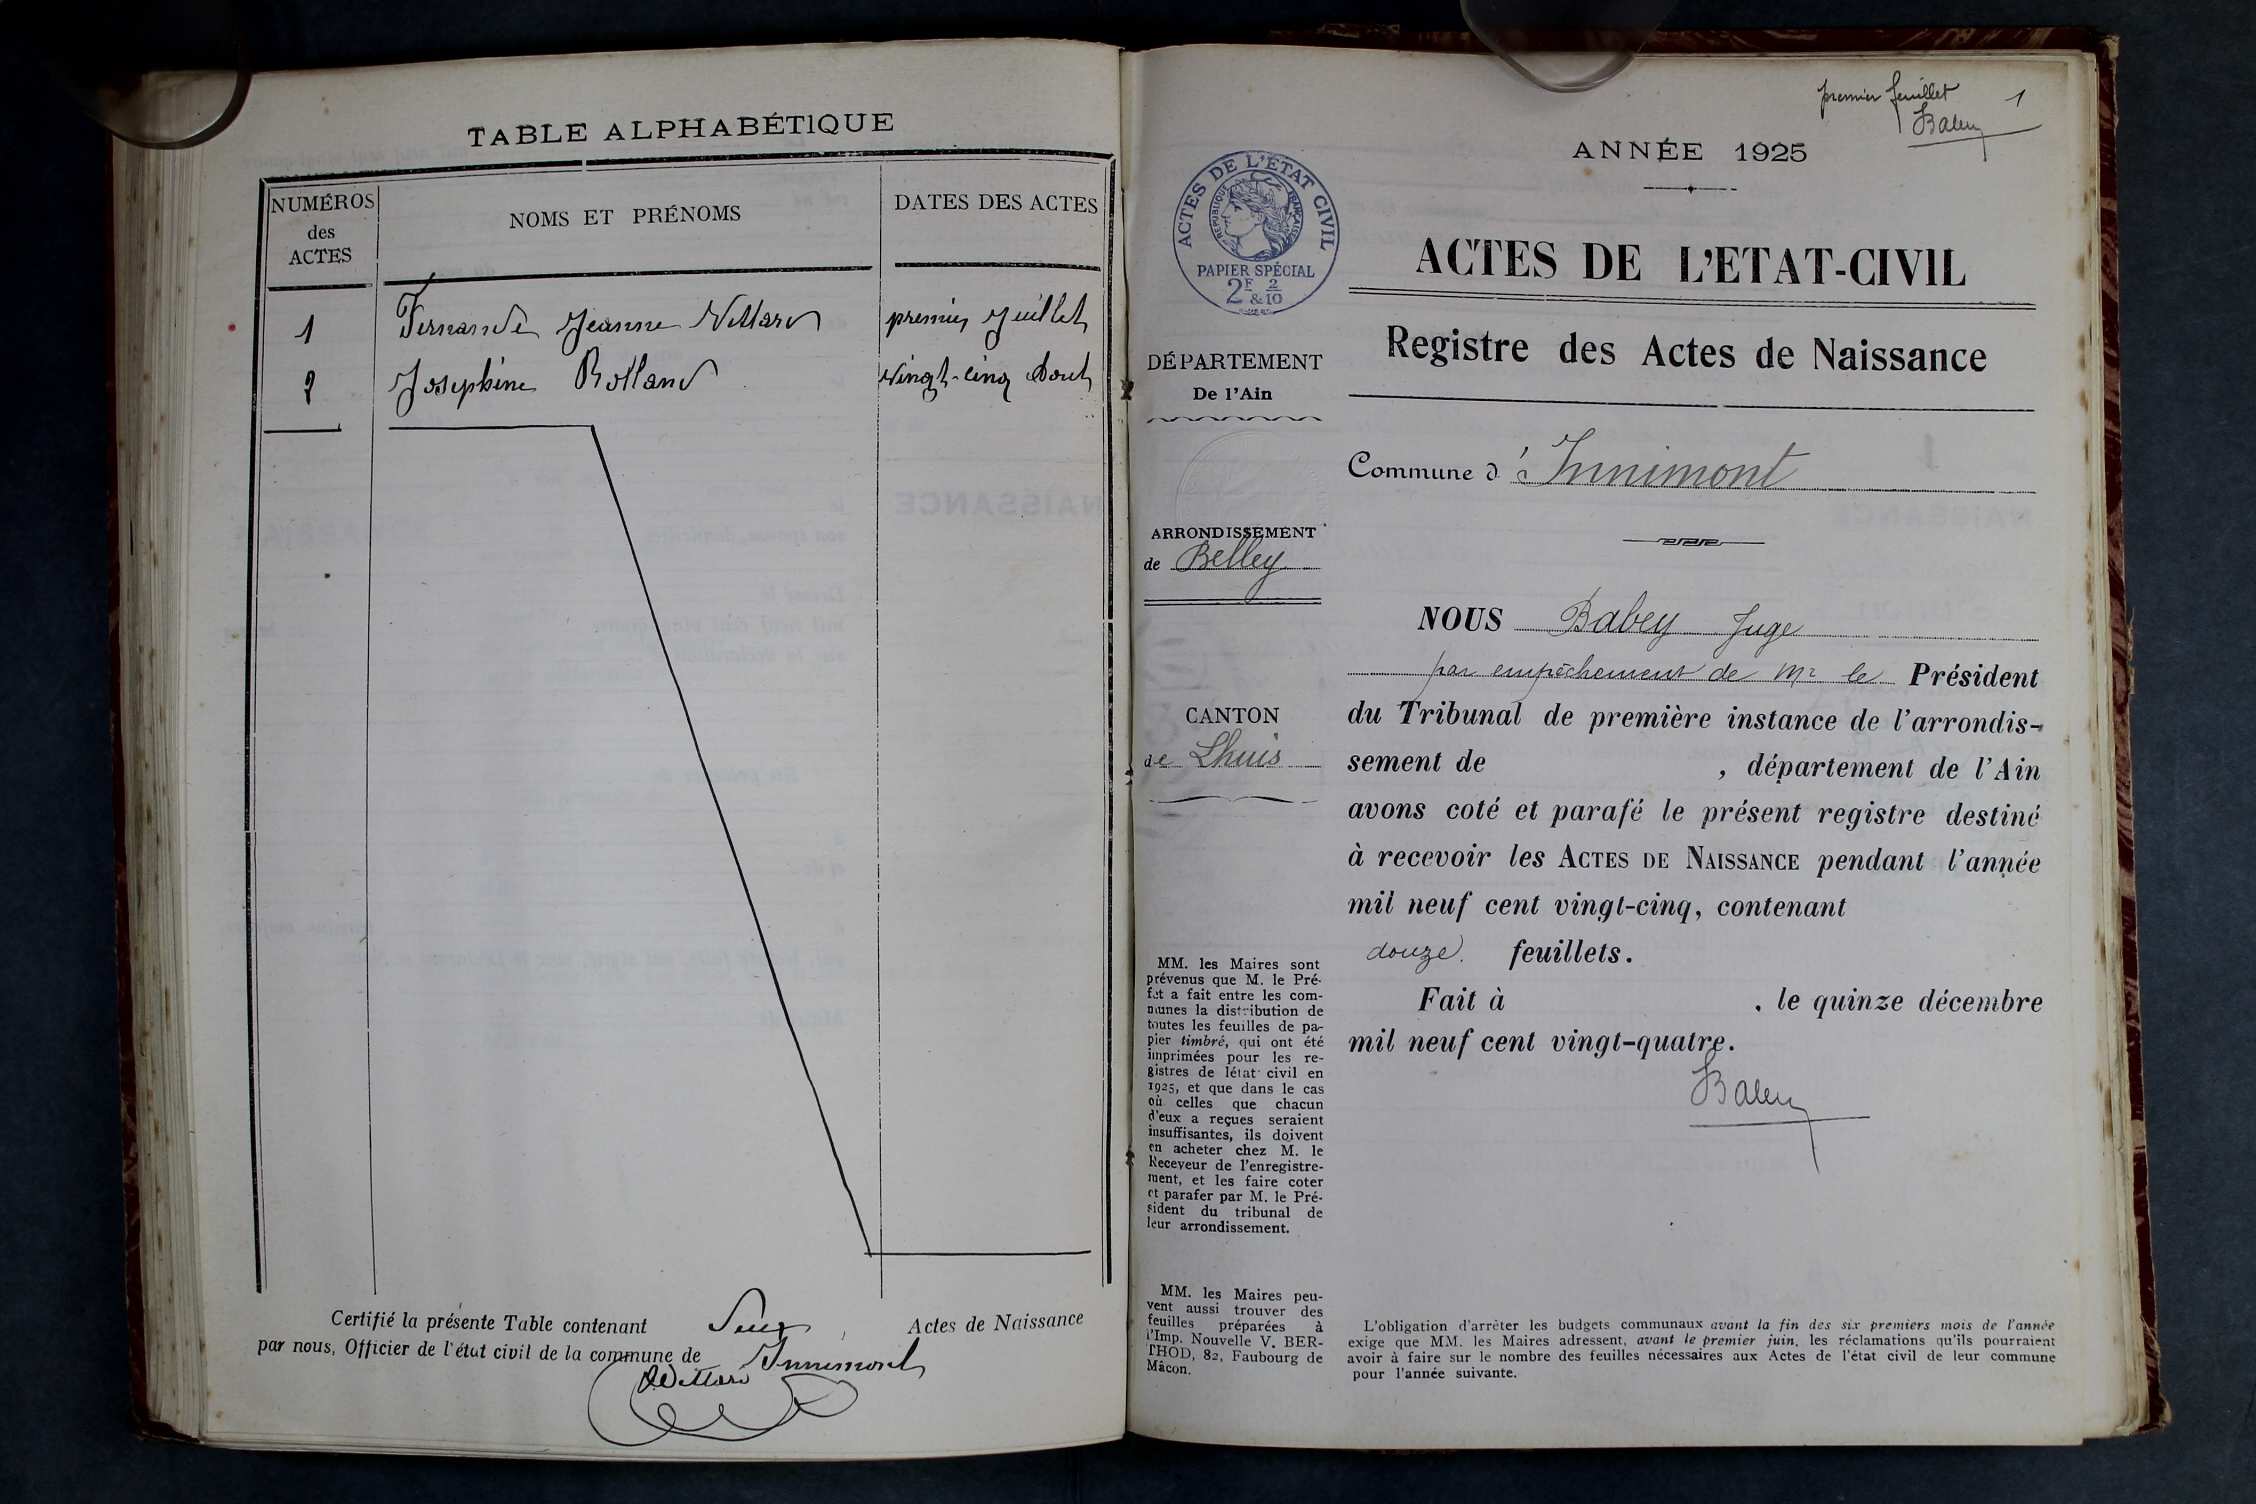 TABLE ALPHABÉTIQUE
NUMÉROS
des
ACTES
NOMS ET PRÉNOMS
DATES DES ACTES
1 Fernande Jeanne premier Juillet
2 Josephine Rolland vingt-cinq Aout
Certifié la présente Table contenant Deux Actes de Naissance
par nous, Officier de l'état civil de la commune de Innimont
premier feuillet 1
Babey
ANNÉE 1925
ACTES DE L'ÉTAT CIVIL
RÉPUBLIQUE FRANÇAISE
PAPIER SPÉCIAL
2F & 2/10
ACTES DE L'ETAT-CIVIL
Registre des Actes de Naissance
DÉPARTEMENT
De l'Ain
Commune d' Innimont
ARRONDISSEMENT
de Belley
NOUS Babey Juge
par empêchement de Mr le Président
du Tribunal de première instance de l'arrondis-
sement de , département de l'Ain
avons coté et parafé le présent registre destiné
à recevoir les ACTES DE NAISSANCE pendant l'année
mil neuf cent vingt-cinq, contenant
douze feuillets.
Fait à , le quinze décembre
mil neuf cent vingt-quatre.
Babey
CANTON
de Lhuis
MM. les Maires sont
prévenus que M. le Pré-
fet a fait entre les com-
munes la distribution de
toutes les feuilles de pa-
pier timbré, qui ont été
imprimées pour les re-
gistres de létat civil en
1925, et que dans le cas
où celles que chacun
d'eux a reçues seraient
insuffisantes, ils doivent
en acheter chez M. le
Receveur de l'enregistre-
ment, et les faire coter
et parafer par M. le Pré-
sident du tribunal de
leur arrondissement.
MM. les Maires peu-
vent aussi trouver des
feuilles préparées à
l'Imp. Nouvelle V. BER-
THOD, 82, Faubourg de
Mâcon.
L'obligation d'arrêter les budgets communaux avant la fin des six premiers mois de l'année
exige que MM. les Maires adressent, avant le premier juin, les réclamations qu'ils pourraient
avoir à faire sur le nombre des feuilles nécessaires aux Actes de l'état civil de leur commune
pour l'année suivante.